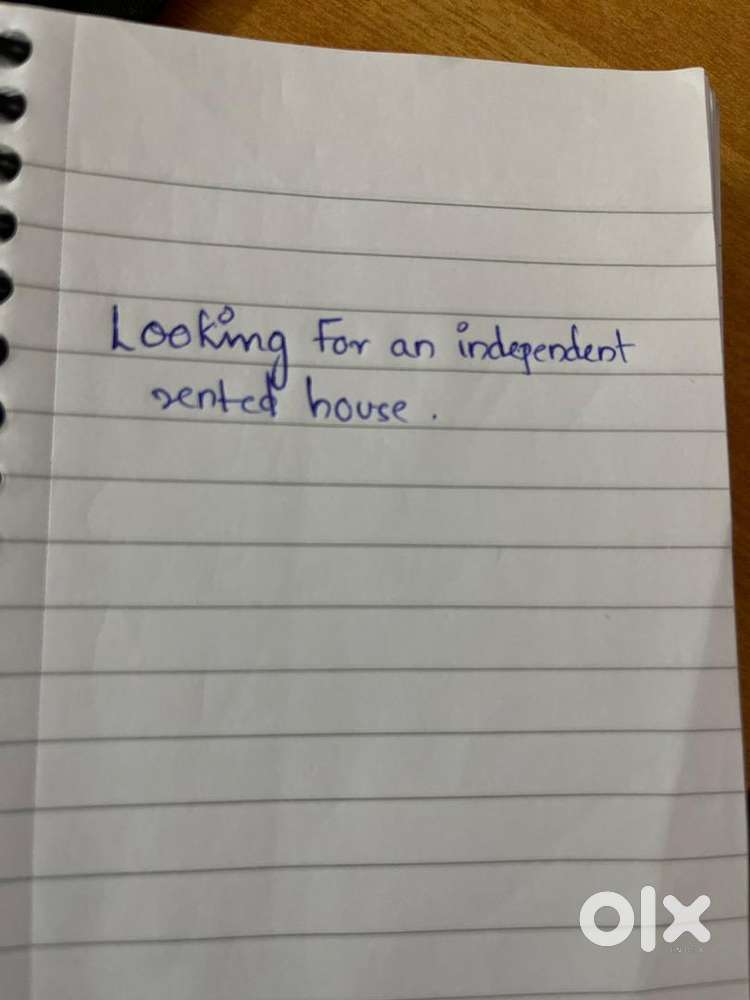 Looking for an independent
rented house.
olx
INDIA